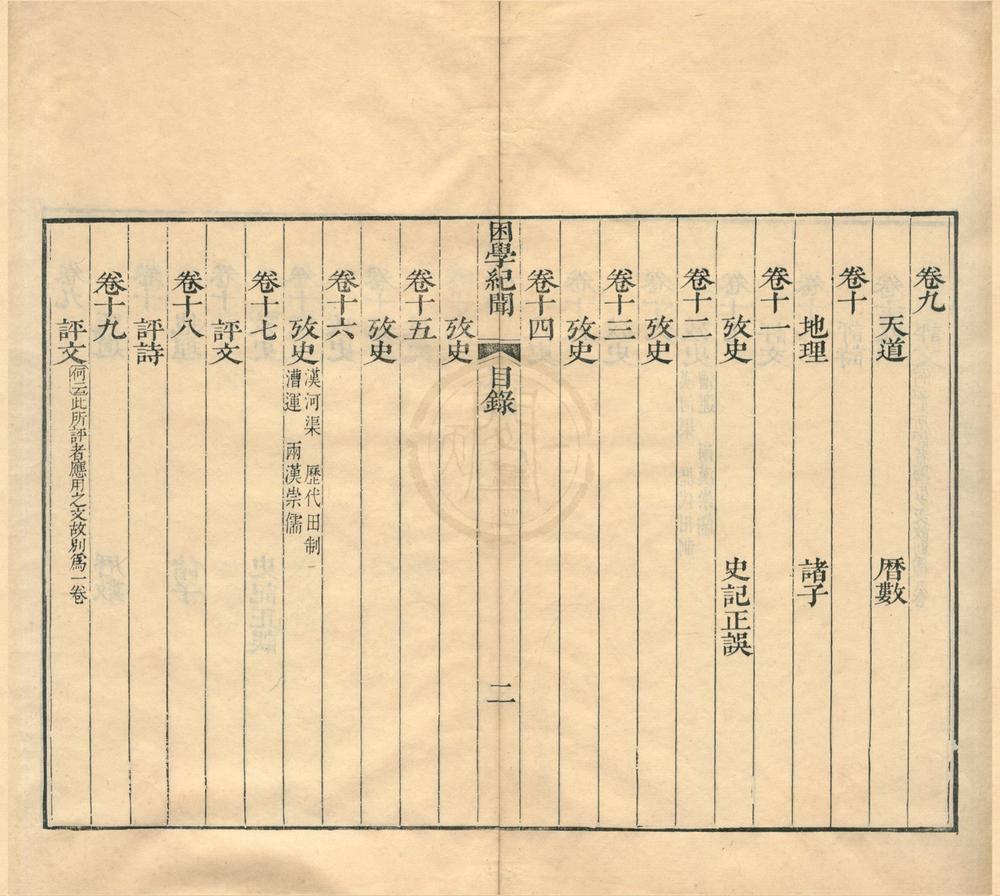 卷九
天道 曆數
卷十
地理 諸子
卷十一
攷史 史記正誤
卷十二
攷史
卷十三
攷史
卷十四
困學紀聞 目錄 二
攷史
卷十五
攷史
卷十六
攷史 漢河渠 歷代田制
漕運 兩漢崇儒
卷十七
評文
卷十八
評詩
卷十九
評文 何云此所評者應用之文故別爲一卷